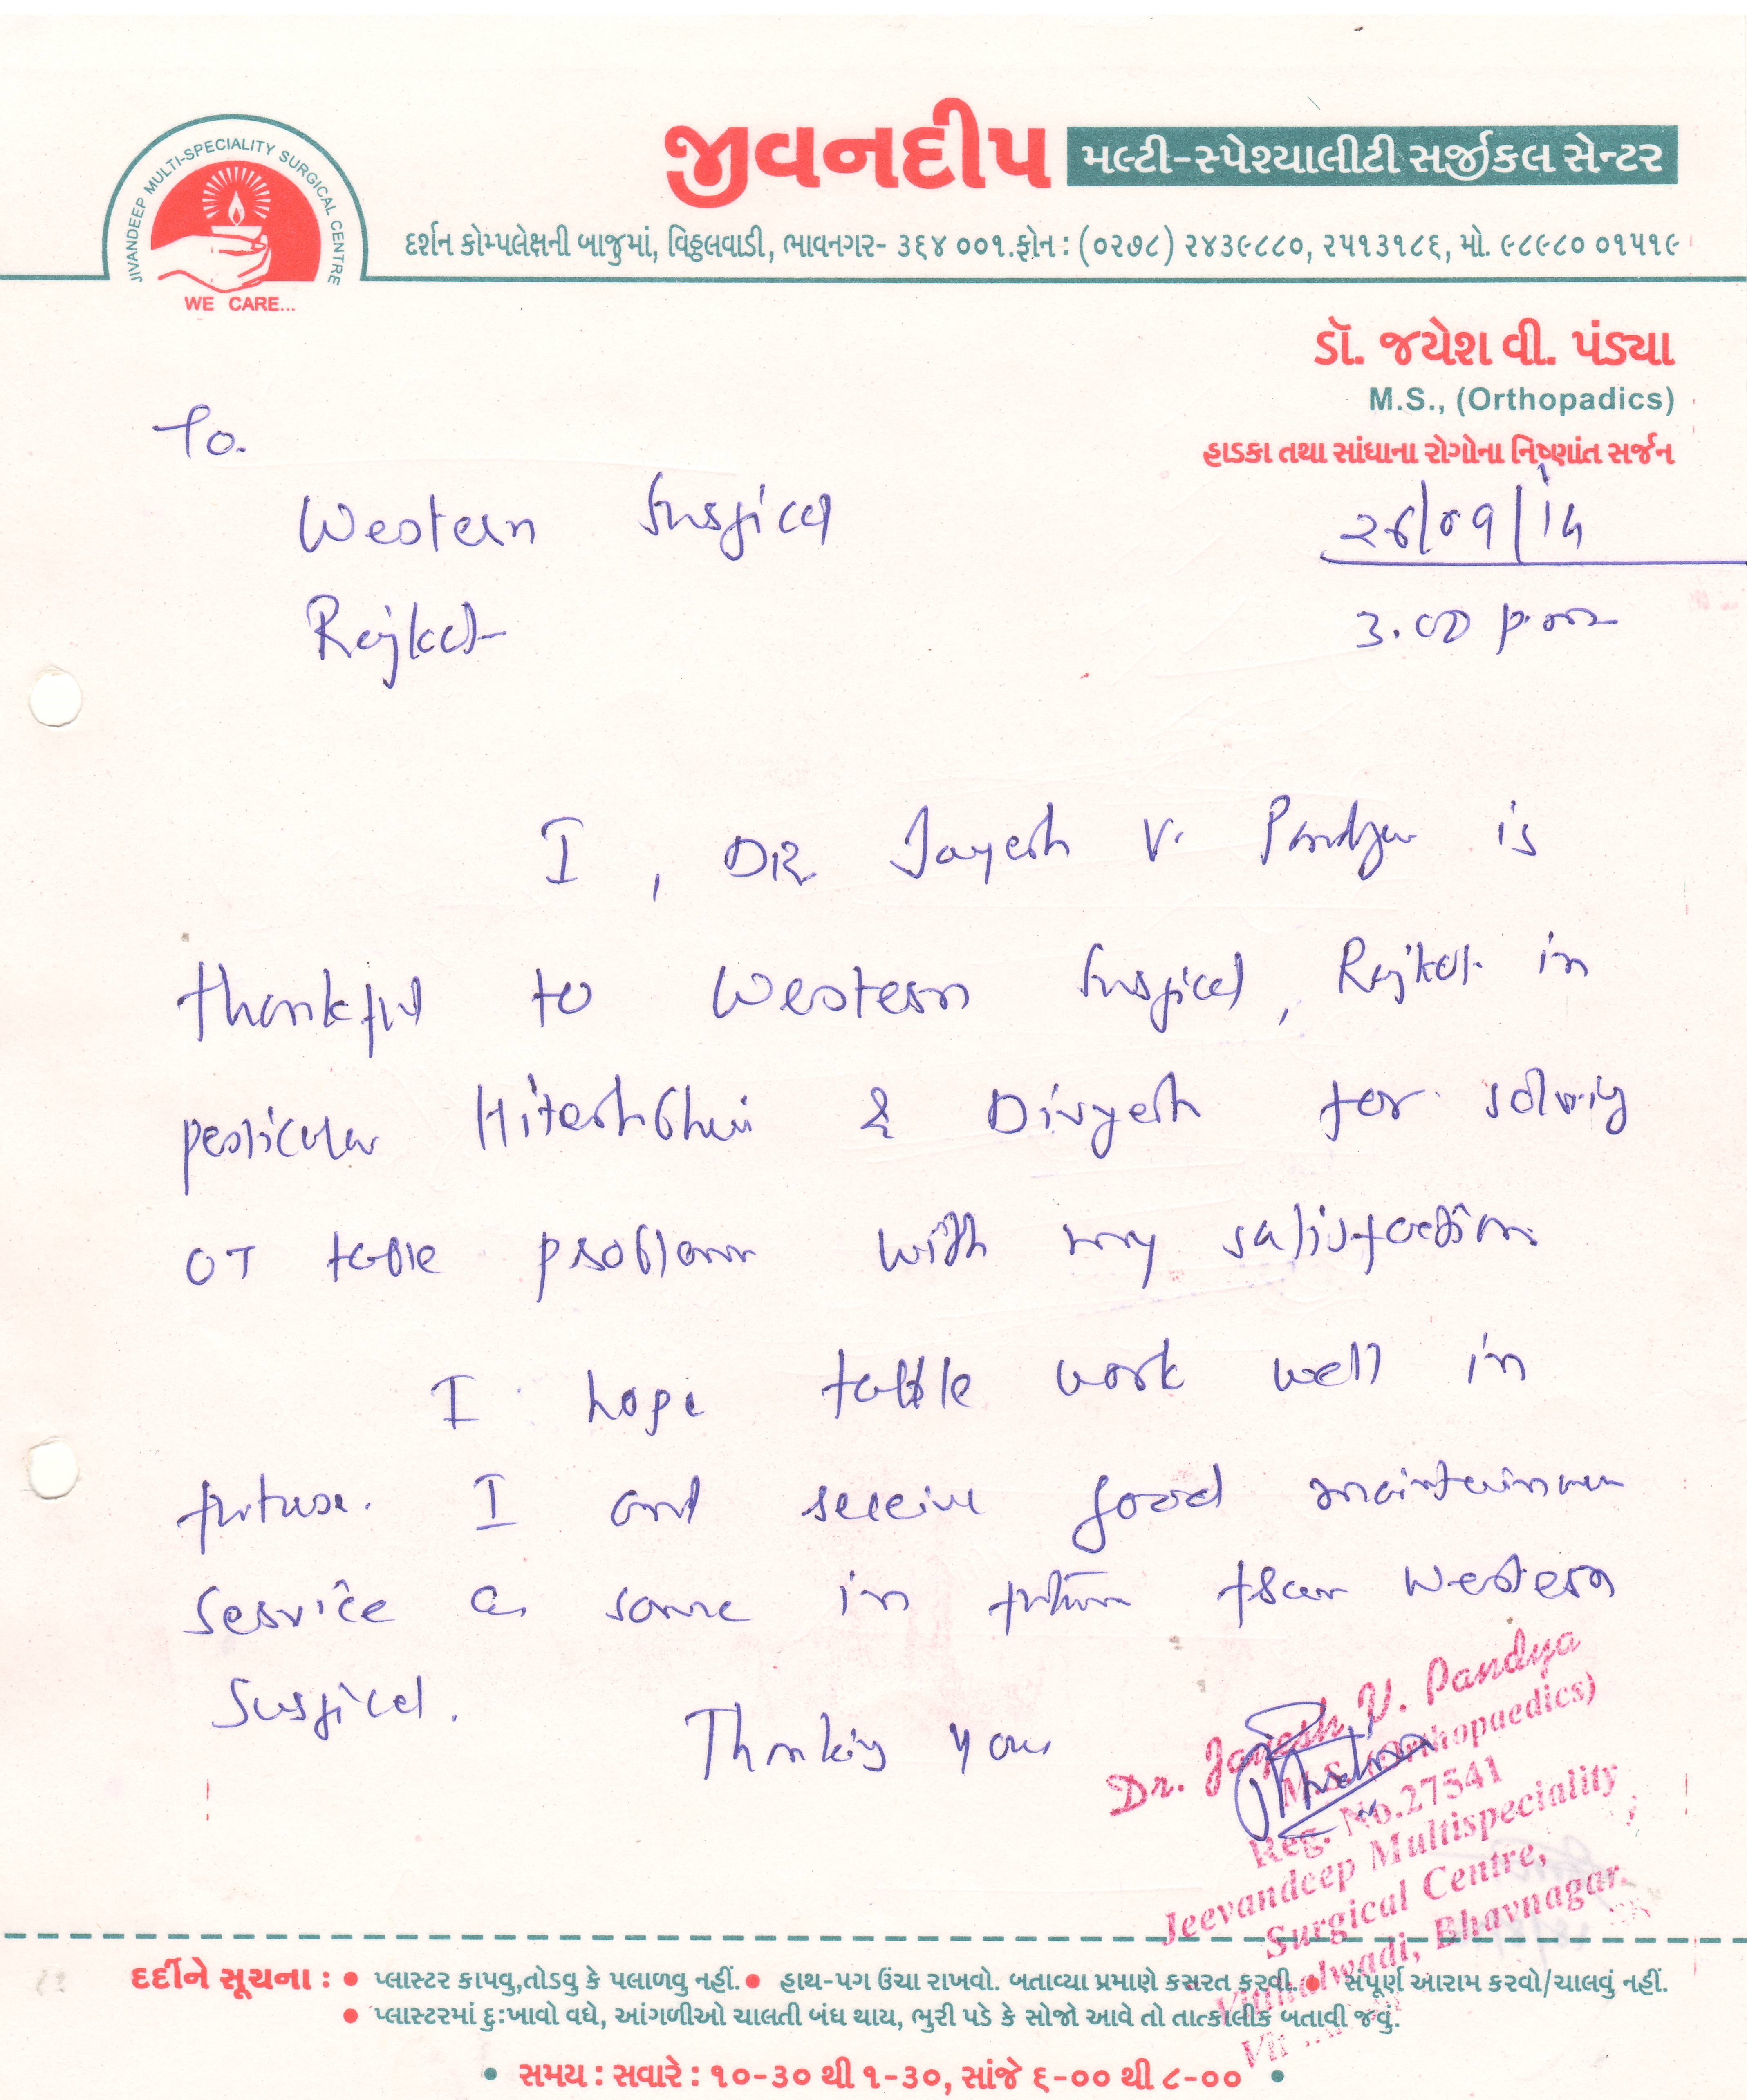 JIVANDEEP MULTI-SPECIALITY SURGICAL CENTRE
WE CARE...
જીવનદીપ મલ્ટી-સ્પેશ્યાલીટી સર્જીકલ સેન્ટર
દર્શન કોમ્પલેક્ષની બાજુમાં, વિઠ્ઠલવાડી, ભાવનગર- ૩૬૪ ૦૦૧.ફોન : (૦૨૭૮) ૨૪૩૯૮૮૦, ૨૫૧૩૧૮૬, મો. ૯૮૯૮૦ ૦૧૫૧૯
ડૉ. જયેશ વી. પંડ્યા
M.S., (Orthopadics)
હાડકા તથા સાંધાના રોગોના નિષ્ણાંત સર્જન
To.
Western Surgical
Rajkot
3.00 p.m
I, DR Jayesh V. Pandya is
thankful to Western Surgical, Rajkot in
perticular Hiteshbhai & Divyesh for solving
OT table problem with my satisfaction
I hope table work well in
future. I and receive good
service as same in future from Western
Surgical.
Thanking you
Dr. Jayesh V. Pandya
M.S. (Orthopaedics)
Reg. No.27541
Jeevandeep Multispeciality
Surgical Centre,
Vithalwadi, Bhavnagar.
દર્દીને સૂચના : ● પ્લાસ્ટર કાપવુ,તોડવુ કે પલાળવુ નહીં. ● હાથ-પગ ઉંચા રાખવો. બતાવ્યા પ્રમાણે કસરત કરવી. ● સંપૂર્ણ આરામ કરવો/ચાલવું નહીં.
● પ્લાસ્ટરમાં દુ:ખાવો વધે, આંગળીઓ ચાલતી બંધ થાય, ભુરી પડે કે સોજો આવે તો તાત્કાલીક બતાવી જવું.
• સમય : સવારે : ૧૦-૩૦ થી ૧-૩૦, સાંજે ૬-૦૦ થી ૮-૦૦ •